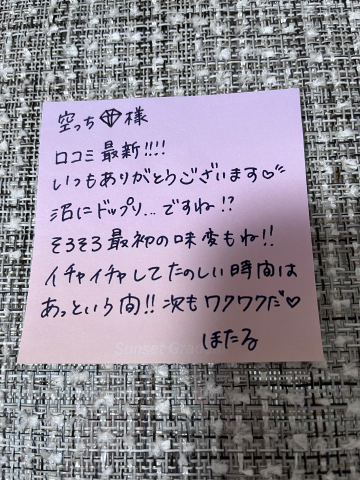 空っち💎様
口コミ最新!!!!
いつもありがとうございます♡
沼にドップリ...ですね!?
そろそろ最初の味変もね!!
イチャイチャしてたのしい時間は
あっという間!!次もワクワクだ♡
ほたる
Sunset Gra